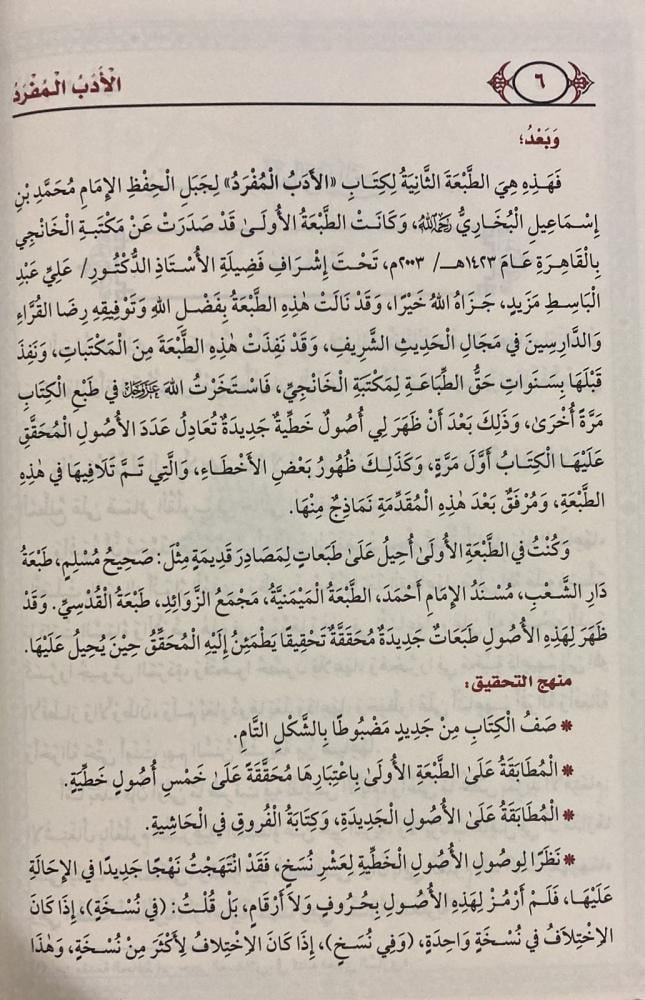 ٦
الْأَدَبُ الْمُفْرَدُ
وَبَعْدُ؛
فَهَذِهِ هِيَ الطَّبْعَةُ الثَّانِيَةُ لِكِتَابِ «الأَدَبُ الْمُفْرَدُ» لِجَبَلِ الْحِفْظِ الإِمَامِ مُحَمَّدِ بْنِ
إِسْمَاعِيلَ الْبُخَارِيُّ رَحِمَهُ اللَّهُ، وَكَانَتْ الطَّبْعَةُ الأُولَىٰ قَدْ صَدَرَتْ عَنْ مَكْتَبَةِ الْخَانْجِي
بِالْقَاهِرَةِ عَامَ ١٤٢٣هـ / ٢٠٠٣م، تَحْتَ إِشْرَافِ فَضِيلَةِ الأُسْتَاذِ الدُّكْتُورِ/ عَلِيِّ عَبْدِ
الْبَاسِطِ مَزِيدٍ، جَزَاهُ اللهُ خَيْرًا، وَقَدْ نَالَتْ هٰذِهِ الطَّبْعَةُ بِفَضْلِ اللهِ وَتَوْفِيقِهِ رِضَا الْقُرَّاءِ
وَالدَّارِسِينَ فِي مَجَالِ الْحَدِيثِ الشَّرِيفِ، وَقَدْ نَفِدَتْ هٰذِهِ الطَّبْعَةُ مِنَ الْمَكْتَبَاتِ، وَنَفِذَ
قَبْلَهَا بِسَنَوَاتٍ حَقُّ الطِّبَاعَةِ لِمَكْتَبَةِ الْخَانْجِيِّ، فَاسْتَخَرْتُ اللهَ عَزَّ وَجَلَّ فِي طَبْعِ الْكِتَابِ
مَرَّةً أُخْرَىٰ، وَذَلِكَ بَعْدَ أَنْ ظَهَرَ لِي أُصُولٌ خَطِّيةٌ جَدِيدَةٌ تُعَادِلُ عَدَدَ الأُصُولِ الْمُحَقَّقِ
عَلَيْهَا الْكِتَابُ أَوَّلَ مَرَّةٍ، وَكَذَلِكَ ظُهُورُ بَعْضِ الأَخْطَاءِ، وَالَّتِي تَمَّ تَلَافِيهَا فِي هٰذِهِ
الطَّبْعَةِ، وَمُرْفَقٌ بَعْدَ هٰذِهِ الْمُقَدِّمَةِ نَمَاذِجٌ مِنْهَا.
وَكُنْتُ فِي الطَّبْعَةِ الأُولَىٰ أُحِيلُ عَلَىٰ طَبَعَاتٍ لِمَصَادِرَ قَدِيمَةٍ مِثْلَ: صَحِيحُ مُسْلِمٍ، طَبْعَةُ
دَارِ الشَّعْبِ، مُسْنَدُ الإِمَامِ أَحْمَدَ، الطَّبْعَةُ الْمَيْمَنِيَّةُ، مَجْمَعُ الزَّوَائِدِ، طَبْعَةُ الْقُدْسِيِّ. وَقَدْ
ظَهَرَ لِهَذِهِ الأُصُولِ طَبَعَاتٌ جَدِيدَةٌ مُحَقَّقَةٌ تَحْقِيقًا يَطْمَئِنُّ إِلَيْهِ الْمُحَقِّقُ حِيْنَ يُحِيلُ عَلَيْهَا.
منهج التحقيق:
* صَفُ الْكِتَابِ مِنْ جَدِيدٍ مَضْبُوطًا بِالشَّكْلِ التَّامِ.
* الْمُطَابَقَةُ عَلَىٰ الطَّبْعَةِ الأُولَىٰ بِاعْتِبَارِهَا مُحَقَّقَةً عَلَىٰ خَمْسِ أُصُولٍ خَطِّيَةٍ.
* الْمُطَابَقَةُ عَلَىٰ الأُصُولِ الْجَدِيدَةِ، وَكِتَابَةُ الْفُرُوقِ فِي الْحَاشِيَةِ.
* نَظَرًا لِوصُولِ الأُصُولِ الْخَطِّيةِ لِعَشْرِ نُسَخٍ، فَقَدْ انْتَهَجْتُ نَهْجًا جَدِيدًا فِي الإِحَالَةِ
عَلَيْهَا، فَلَمْ أَرْمُزْ لِهَذِهِ الأُصُولِ بِحُرُوفٍ وَلاَ أَرْقَامٍ، بَلْ قُلْتُ: (فِي نُسْخَةٍ)، إِذَا كَانَ
الإخْتِلَافُ فِي نُسْخَةٍ وَاحِدَةٍ، (وَفِي نُسَخٍ)، إِذَا كَانَ الإخْتِلَافُ لِأَكْثَرَ مِنْ نُسْخَةٍ، وَهٰذَا